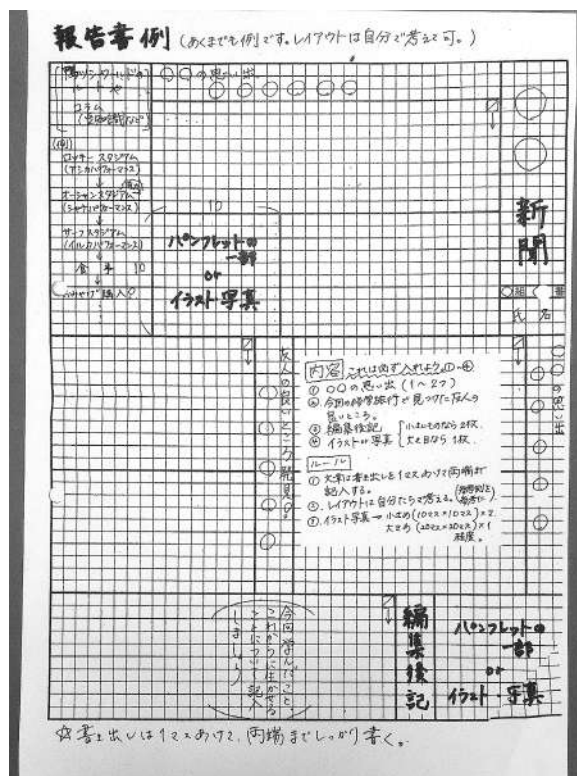 報告書例 (あくまでも例です。レイアウトは自分で考えて可。)
ルートや
コラム
〇〇の思い出
〇〇〇〇〇〇
(例)
ロッキースタジアム
(アシカパフォーマンス)
↓
オーシャンスタジアム
↓
サーフスタジアム
(イルカパフォーマンス)
↓
10
10
パンフレットの
一部
or
イラスト・写真
新聞
〇組
番
氏名
〇〇の思い出
友人の良いところ発見!
内容 これは必ず入れよう。①~④
① 〇〇の思い出 (1~2つ)
② 今回の修学旅行で見つけた友人の
良いところ。
③ 編集後記
④ イラストor写真
小さいものなら2枚。
大きめなら1枚。
ルール
① 文章は書き出しを1マスあけて両端まで
記入する。
② レイアウトは自分たちで考える。
③ イラスト写真→小さめ(10マス×10マス)×2
大きめ(20マス×20マス)×1
程度。
今回学んだこと、
これからに生かせる
ことについて記入
しましょう
編集後記
パンフレットの
一部
or
イラスト・写真
☆書き出しは1マスあけて、両端までしっかり書く。